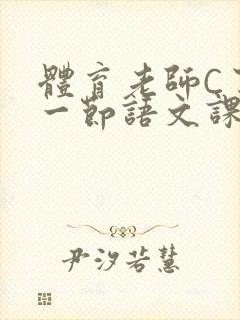 體育老師C
一節語文課
尹汐若慧